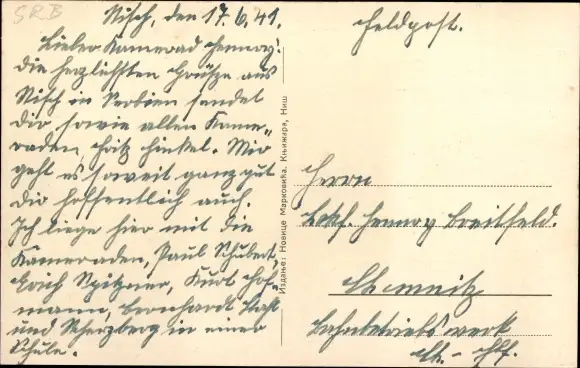 SRB
Nisch, den 17.6.41.
Lieber Kamerad Henry!
Die herzlichsten Grüße aus
Nisch in Serbien sendet
Dir sowie allen Kame„
raden, Fritz Hinkel. Mir
geht es soweit ganz gut
Dir hoffentlich auch.
Ich liege hier mit die
Kameraden, Paul Schubert,
Erich Spitzner, Kurt Hof-
mann, Bernhardt,
und Scherzberg in einer
Schule.
Издање: Новице Марковића, Књижара, Ниш
Feldpost.
Herrn
Lokf. Henry Breitfeld.
Chemnitz
Bahnbetriebswerk
Ch. - Hbf.